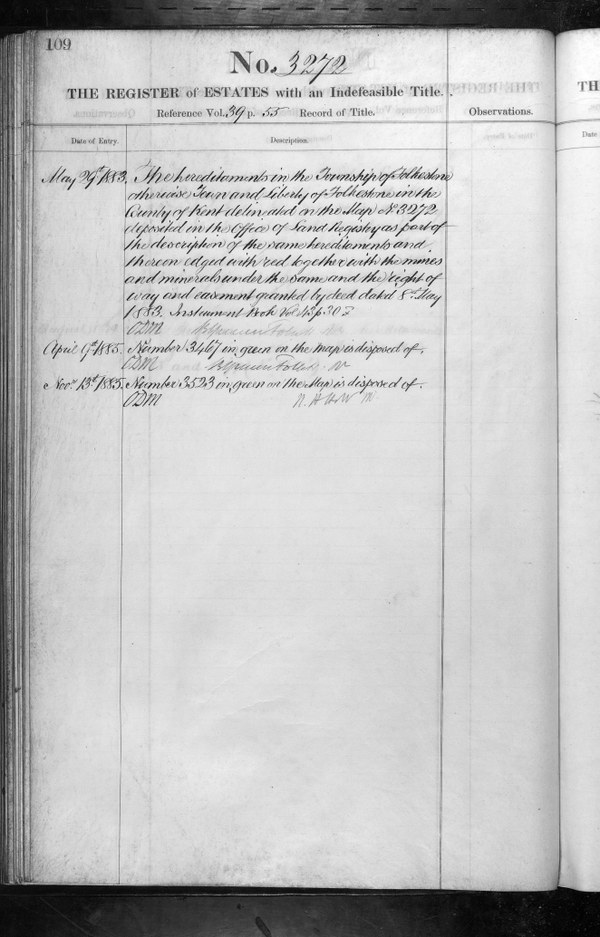 109
No. 3272
THE REGISTER of ESTATES with an Indefeasible Title.
Reference Vol. 39 p. 55 Record of Title.
Observations.
Date of Entry.
Description.
May 29th 1883. The hereditaments in the Township of Folkestone
otherwise Town and Liberty of Folkestone in the
County of Kent delineated on the Map No 3272
deposited in the Office of Land Registry as part of
the description of the same hereditaments and
thereon edged with red together with the mines
and minerals under the same and the right of
way and easement granted by deed dated 8th May
1883. Instrument Book Vol 43 p 30
ODM
April 9th 1885. Number 3467 in green on the map is disposed of.
ODM
Novr 13th 1885. Number 3523 in green on the Map is disposed of.
ODM
TH
Date